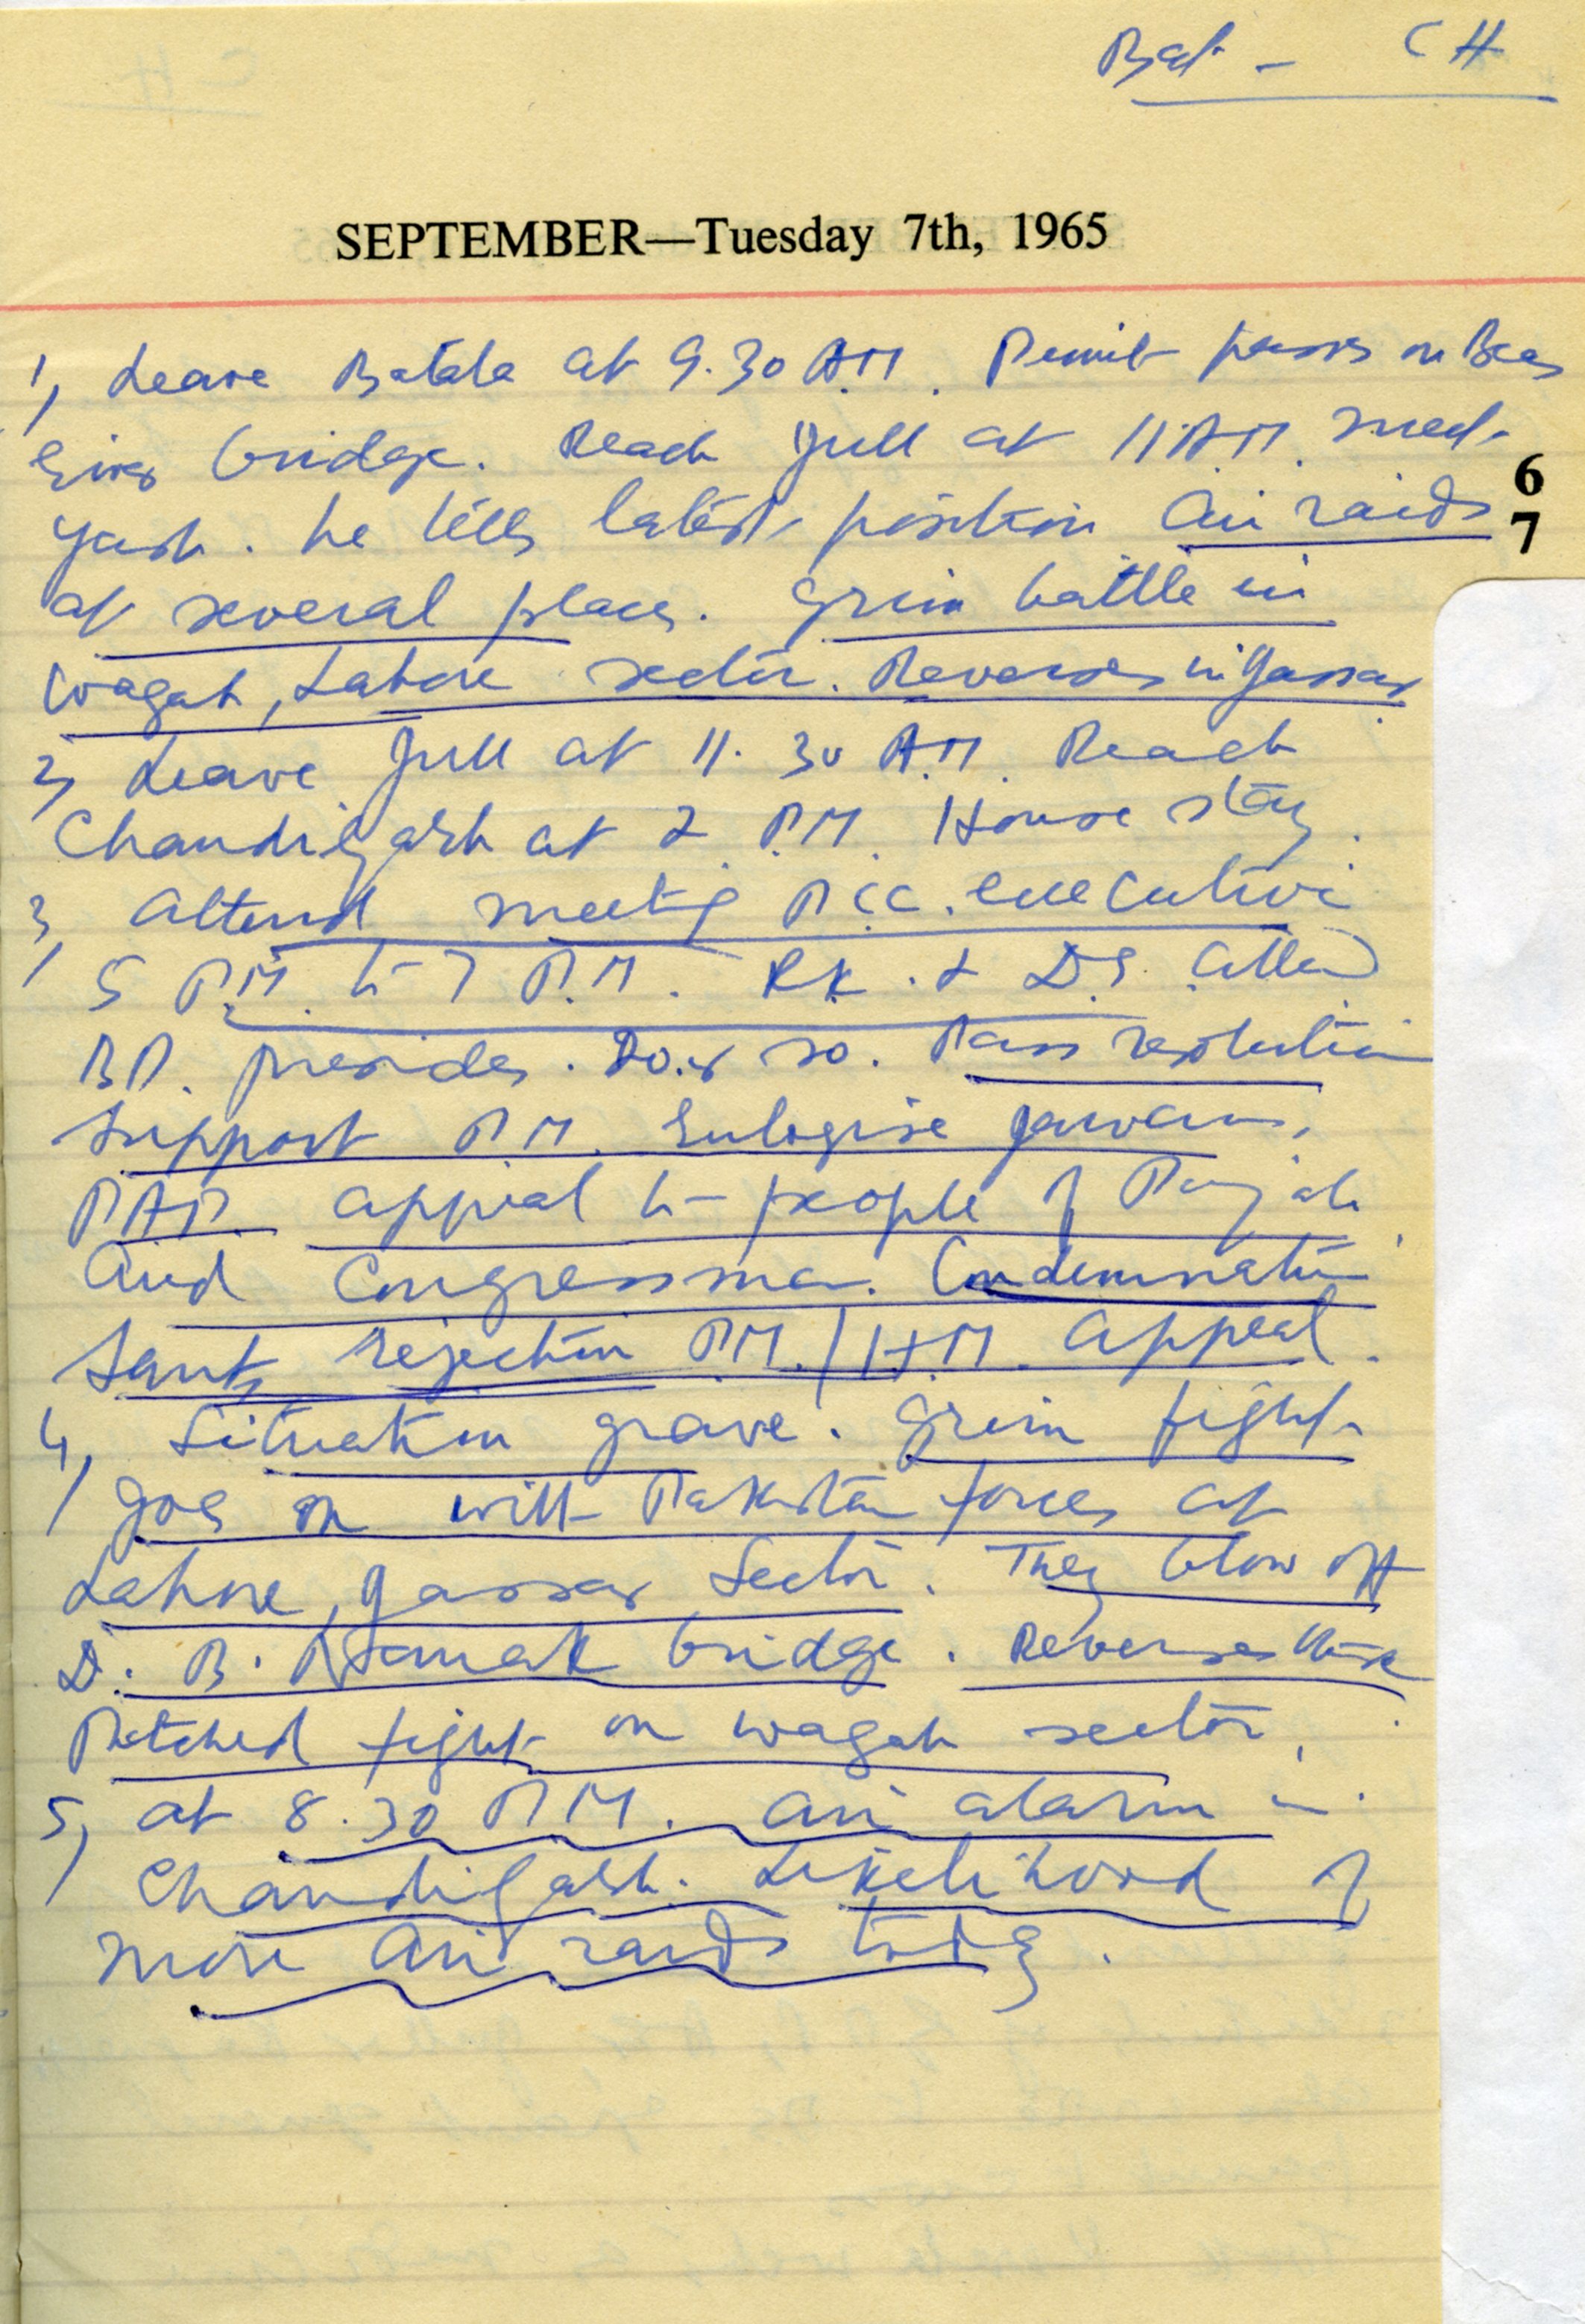 Bat - CH
SEPTEMBER—Tuesday 7th, 1965
1, Leave Batala at 9.30 A.M. Permit passes on Beas
River bridge. Reach Jull at 11 A.M. meet
Yash. he tells latest position Air raids
6
7
at several places. Grim battle in
Wagah, Lahore sector. Reverses in Jassar
2, Leave Jull at 11.30 A.M. Reach
Chandigarh at 2 P.M. House stay.
3, Attend meeting P.C.C. executive
5 P.M. to 7 P.M. RK. & D.S. attend
BD. presides. so. Pass resolution
Support P.M. Eulogise Jawans,
PAP. appeal to people of Punjab
and Congressmen. Condemnation
Sants rejection P.M./H.M. appeal.
4, Situation grave. Grim fight
goes on with Pakistan forces at
Lahore, Jassar Sector. They blow off
D. B. Namak bridge. Reverses
Pitched fight on wagah sector,
5, at 8.30 P.M. air alarm in
Chandigarh. Likelihood of
more air raids today.